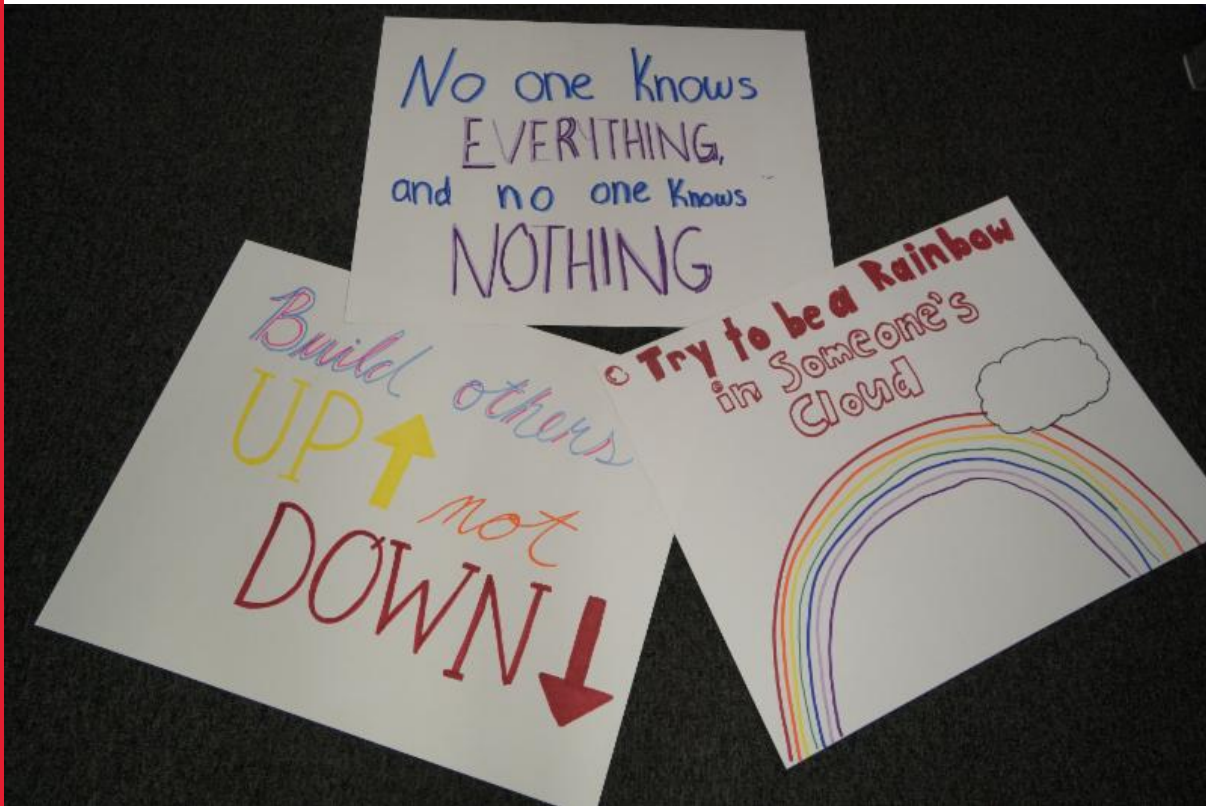 No one knows
EVERYTHING,
and no one knows
NOTHING
Build others
UP
not
DOWN
Try to be a Rainbow
in Someone's
Cloud